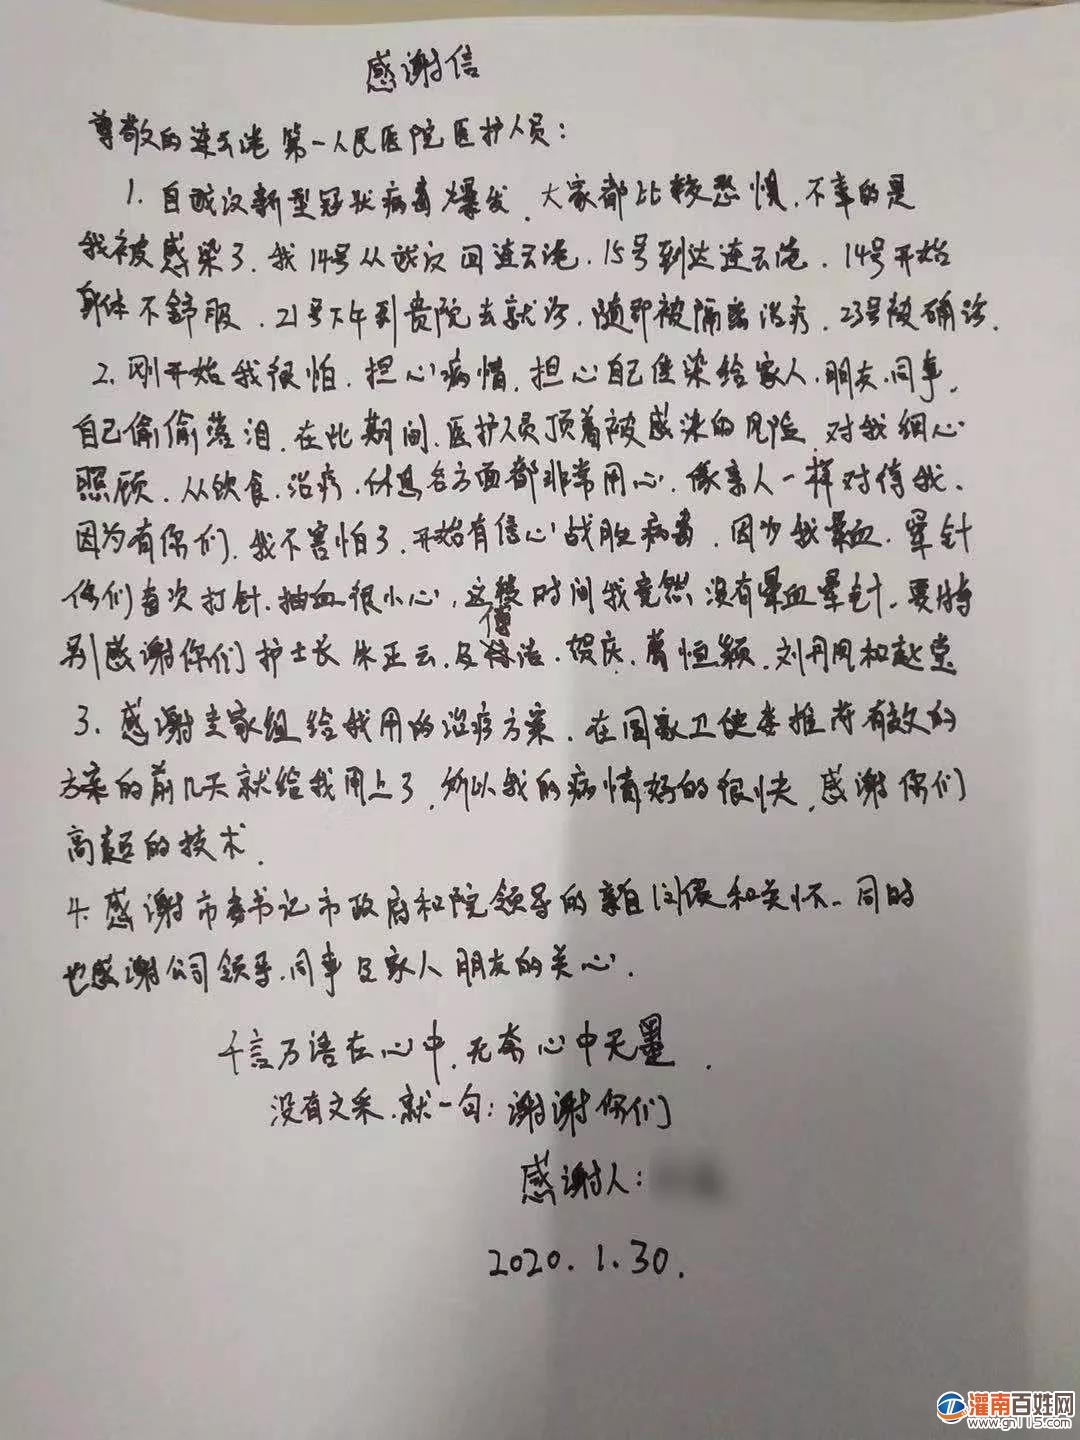 感谢信
尊敬的连云港第一人民医院医护人员：
1. 自武汉新型冠状病毒爆发，大家都比较恐惧，不幸的是
我被感染了，我14号从武汉回连云港，15号到达连云港，14号开始
身体不舒服，21号下午到贵院去就诊，随即被隔离治疗，23号被确诊，
2. 刚开始我很怕，担心病情，担心自己传染给家人，朋友，同事，
自己偷偷落泪，在此期间，医护人员顶着被感染的风险，对我细心
照顾，从饮食，治疗，休息各方面都非常用心，像亲人一样对待我，
因为有你们，我不害怕了，开始有信心战胜病毒，因为我晕血，晕针
你们每次打针，抽血很小心，这段时间我竟然没有晕血晕针，要特
别感谢你们护士长朱正云，及傅洁，贺庆，恒颖，刘丹凤和赵莹
3. 感谢专家组给我用的治疗方案，在国家卫健委推荐有效的
方案的前几天就给我用上了，所以我的病情好的很快，感谢你们
高超的技术，
4. 感谢市委书记市政府和院领导的亲自问候和关怀，同时
也感谢公司领导，同事及家人朋友的关心，
千言万语在心中，无奈心中无墨，
没有文采，就一句：谢谢你们
感谢人：
2020.1.30.
灌南百姓网
www.gn115.com